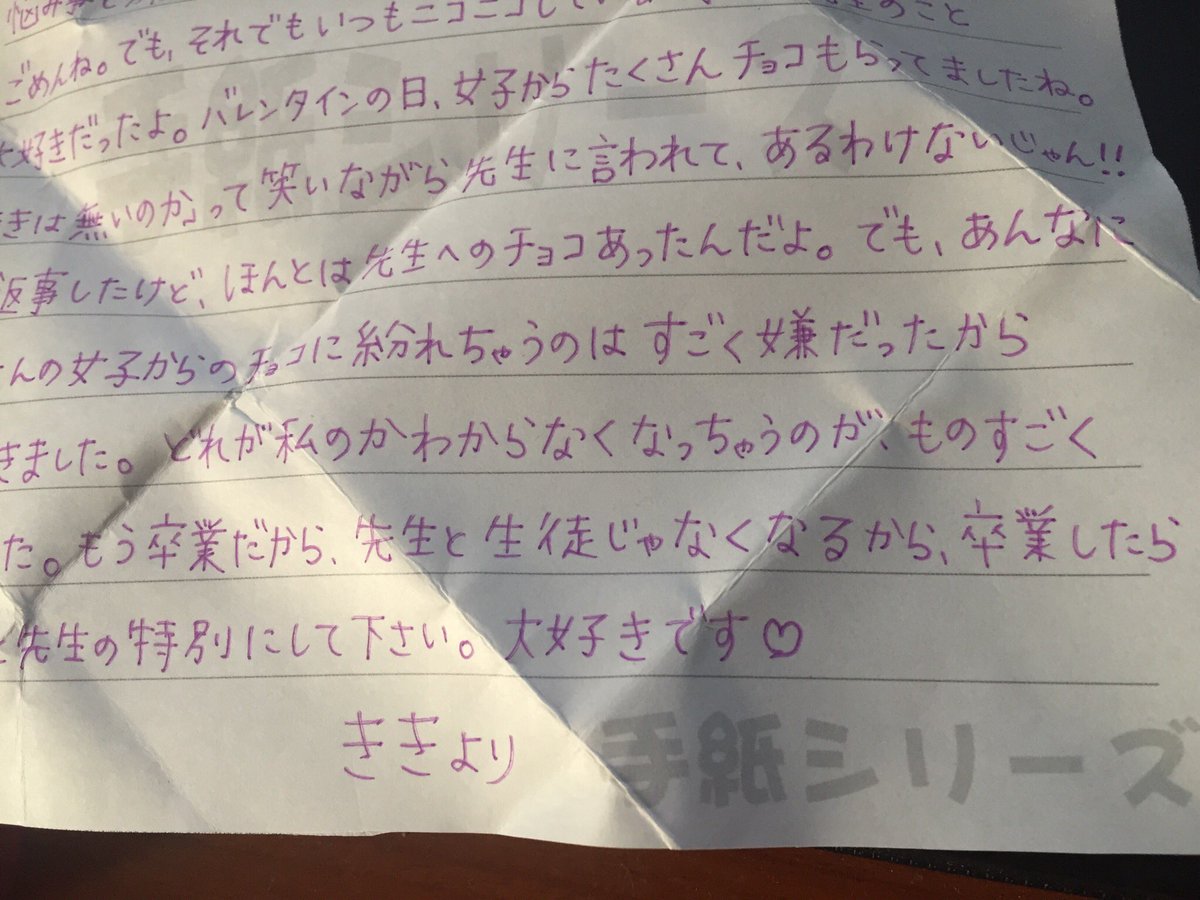 悩み事
ごめんね。でも、それでもいつもニコニコしてい のこと
大好きだったよ。バレンタインの日、女子からたくさんチョコもらってましたね。
きは無いのか」って笑いながら先生に言われて、あるわけないじゃん!!
返事したけど、ほんとは先生へのチョコあったんだよ。でも、あんなに
さんの女子からのチョコに紛れちゃうのはすごく嫌だったから
きました。どれが私のかわからなくなっちゃうのが、ものすごく
た。もう卒業だから、先生と生徒じゃなくなるから、卒業したら
先生の特別にして下さい。大好きです♡
ききより
手紙シリーズ
手紙シリーズ